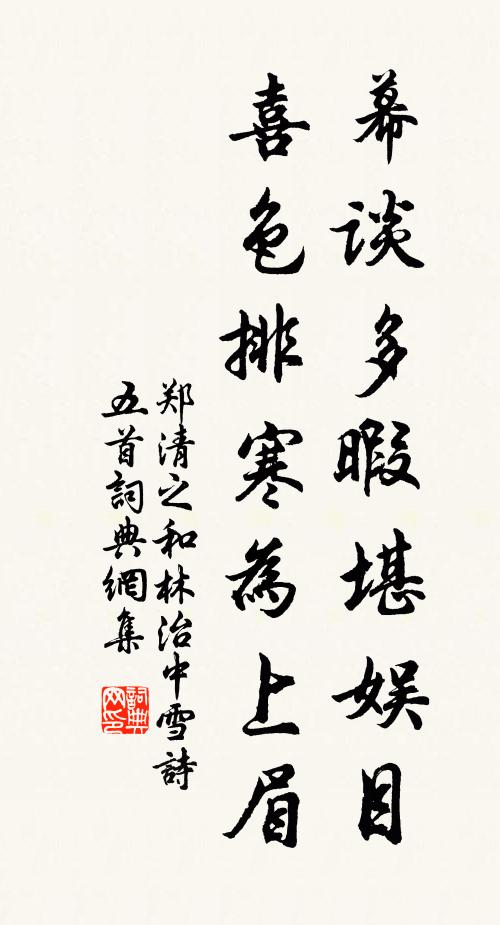 幕谈多暇堪娱目
喜色排寒為上眉
郑清之和林治中雪詩
五首詞典網集
詞典网印